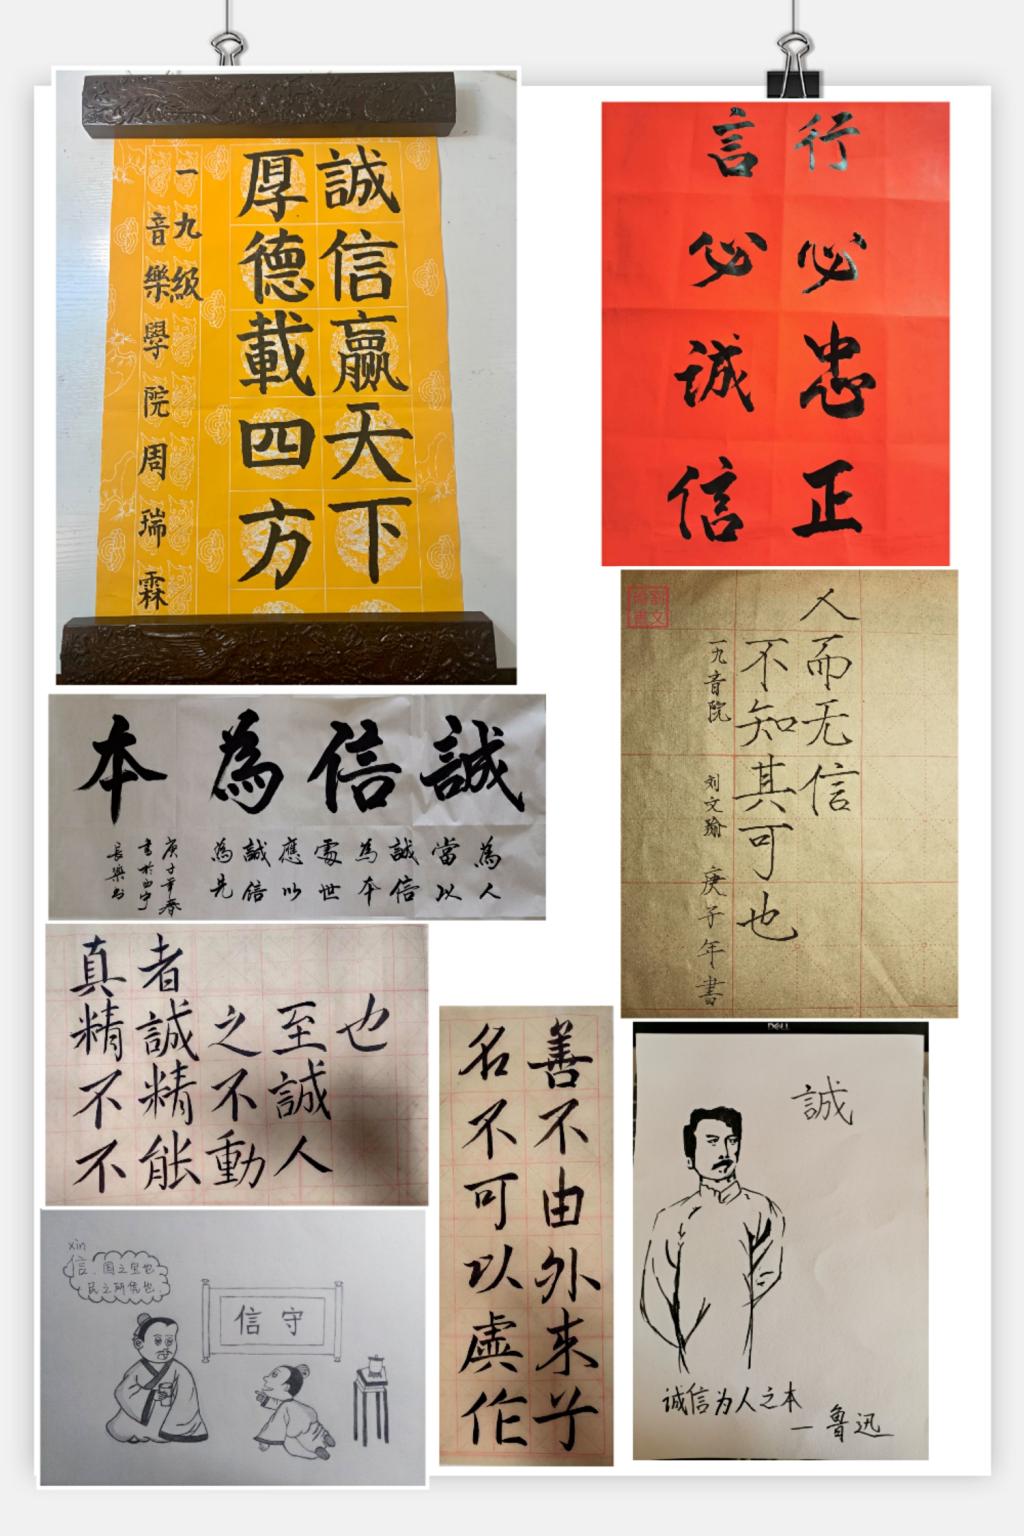 誠信贏天下
厚德載四方
一九級
音樂學院周瑞霖
行必忠正
言必诚信
人而无信
不知其可也
一九音院 刘文瑜 庚子年書
誠信為本
為人
當以
誠信
為本
處世
應以
誠信
為先
庚子年春
真者
精誠之至也
不精不誠
不能動人
善不由外来兮
名不可以虚作
xin
信,国之宝也,
民之所凭也.
守信
DELL
誠
诚信为人之本
—鲁迅